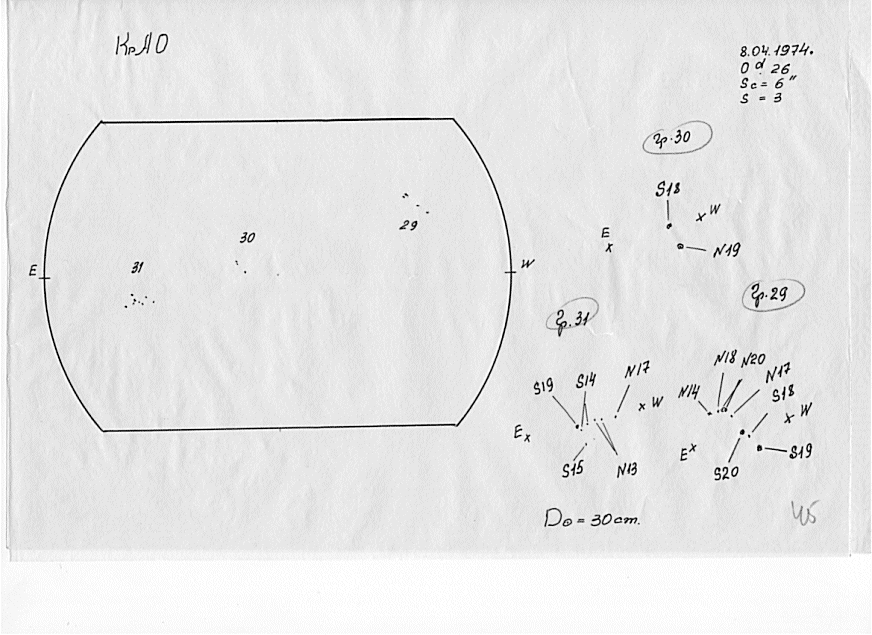 КрАО
8.04.1974.
0ᵈ.26
Sc = 6"
S = 3
Гр.30
S18
W
E
N19
29
30
31
E
W
Гр.29
Гр.31
N18 N20
N17
N14
S18
W
E
S19
S20
S19 S14
N17
W
E
S15
N13
D⊙ = 30cm.
45